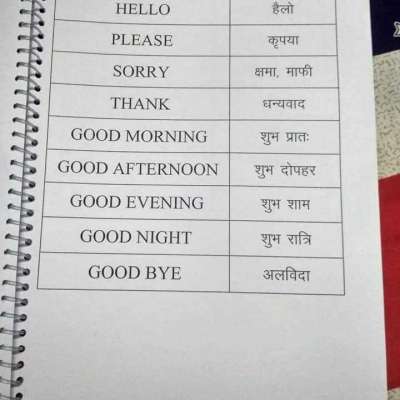 HELLO हैलो
PLEASE कृपया
SORRY क्षमा, माफी
THANK धन्यवाद
GOOD MORNING शुभ प्रातः
GOOD AFTERNOON शुभ दोपहर
GOOD EVENING शुभ शाम
GOOD NIGHT शुभ रात्रि
GOOD BYE अलविदा